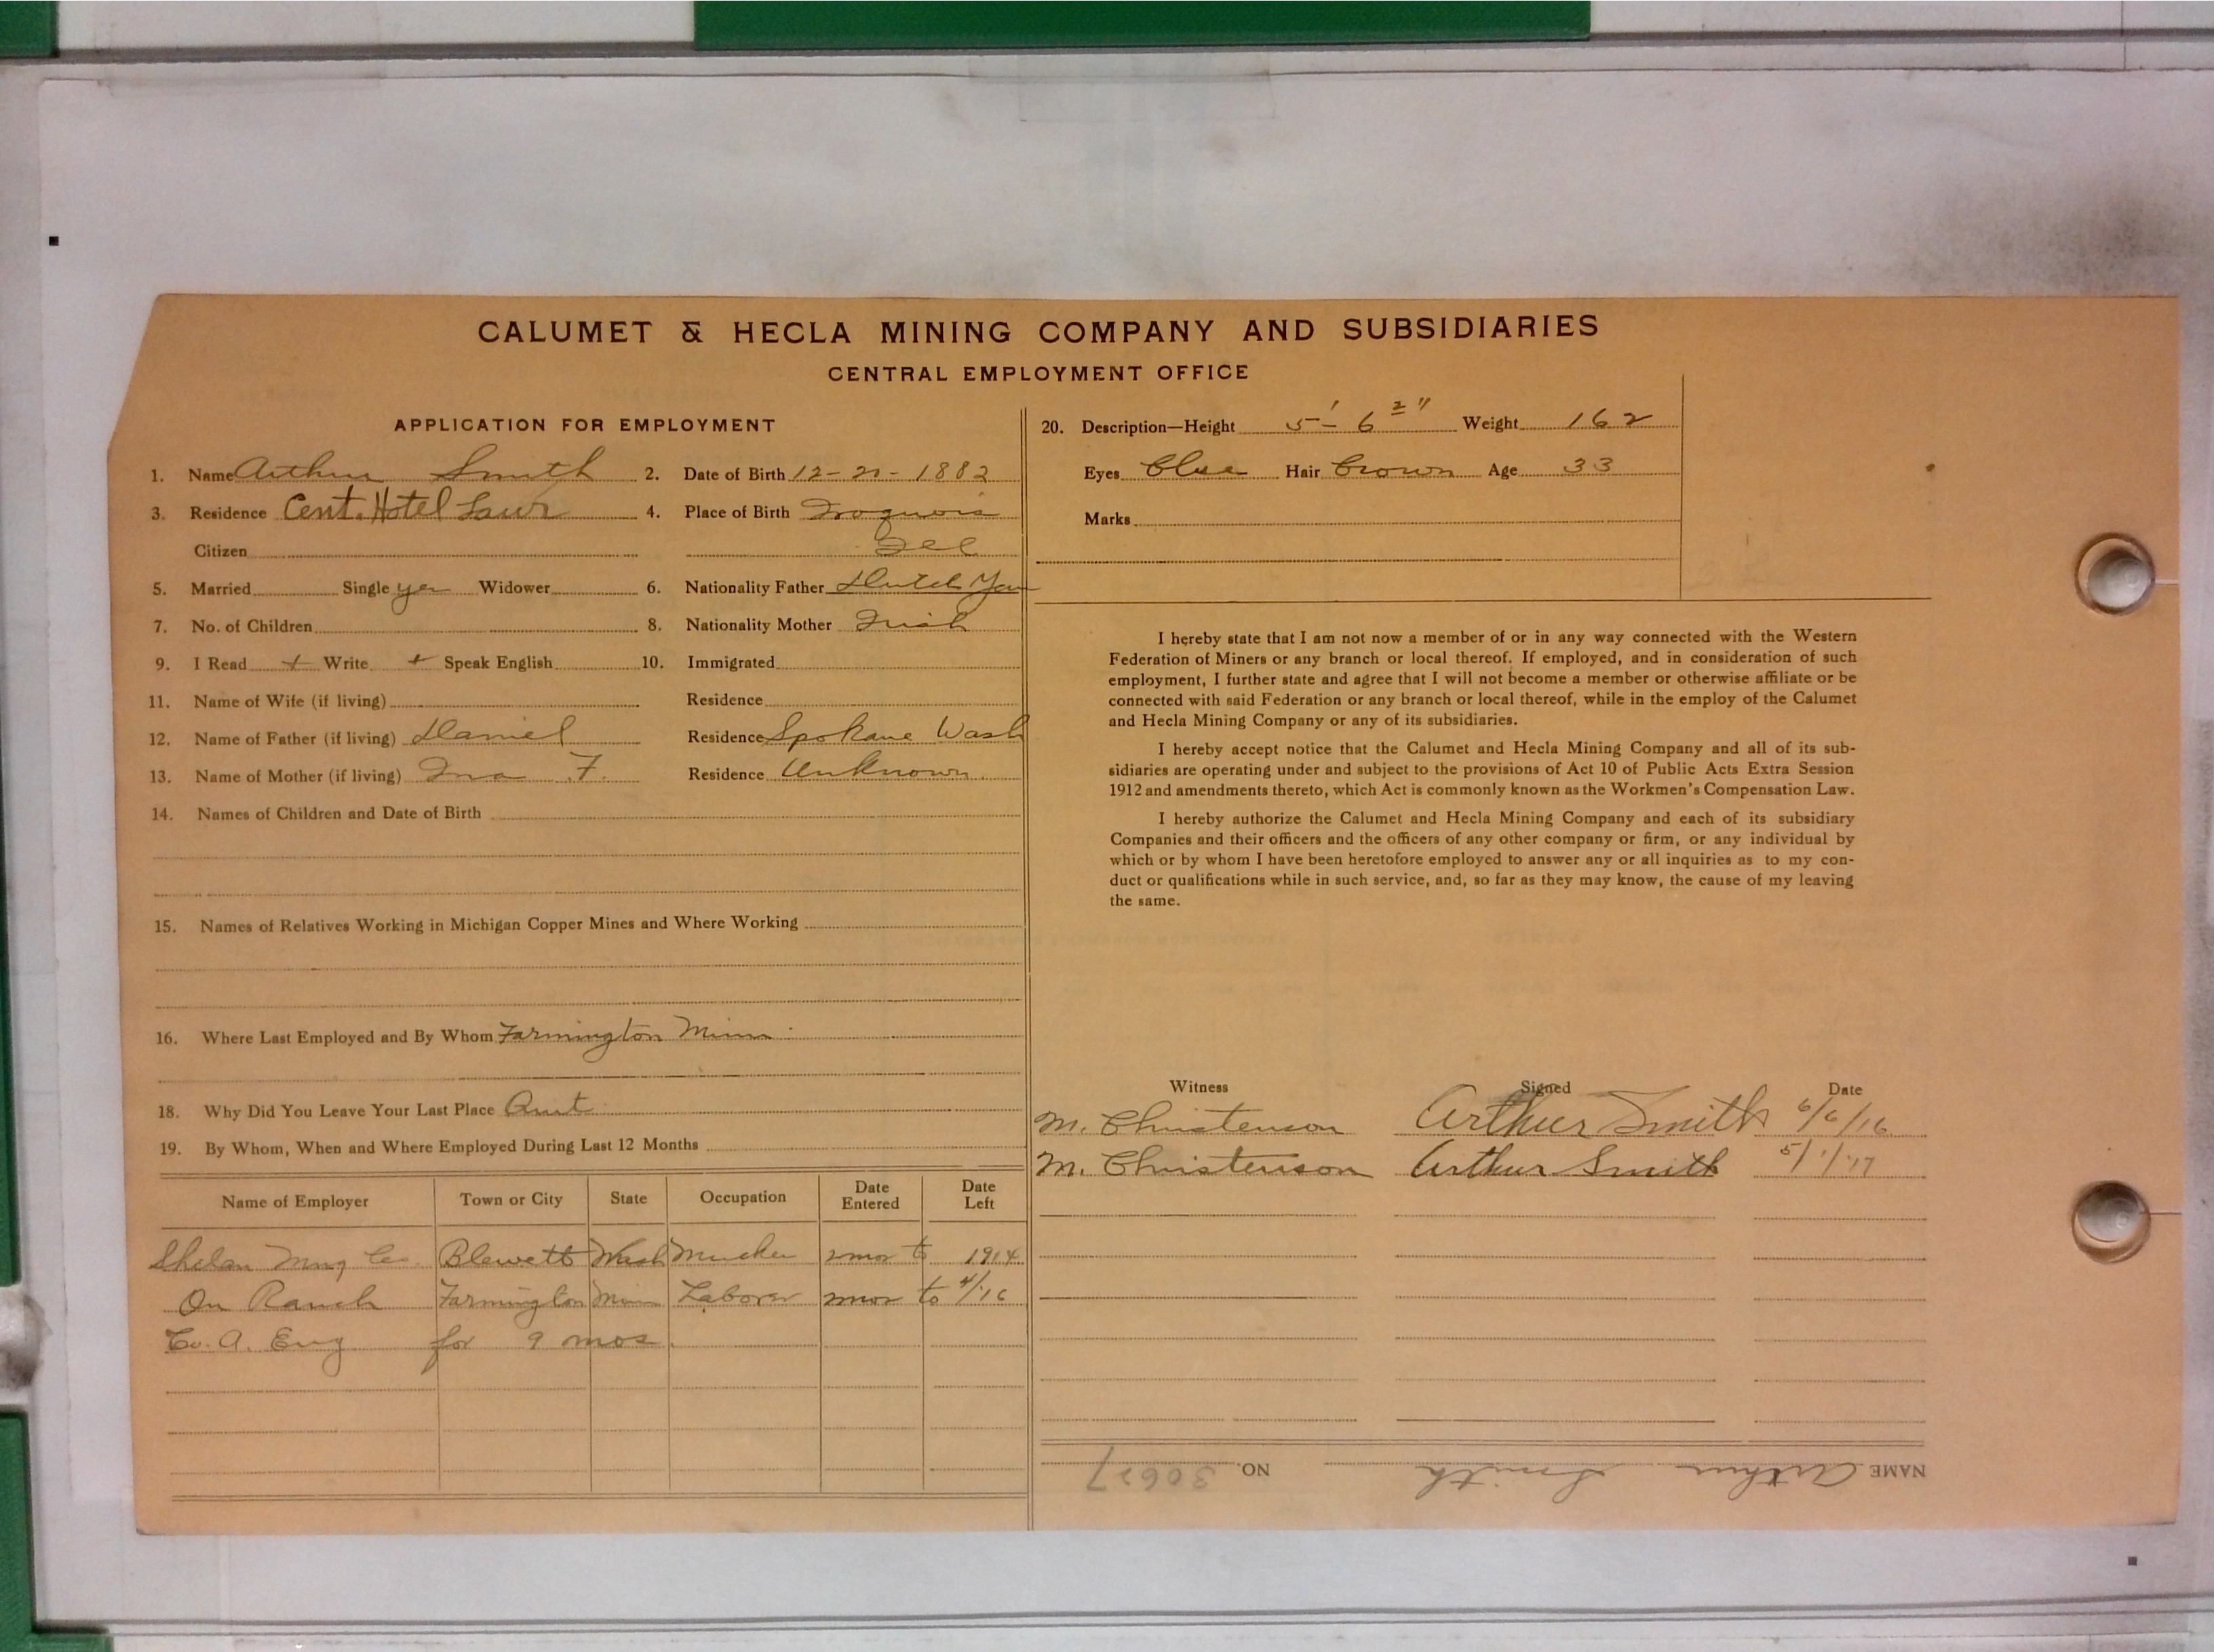 CALUMET & HECLA MINING COMPANY AND SUBSIDIARIES
CENTRAL EMPLOYMENT OFFICE
APPLICATION FOR EMPLOYMENT
1. Name Arthur Smith 2. Date of Birth 12-21-1882
3. Residence Cent. Hotel Laur 4. Place of Birth Iroquois
Citizen
5. Married Single yes Widower 6. Nationality Father Dutch Yan
7. No. of Children 8. Nationality Mother Irish
9. I Read + Write + Speak English 10. Immigrated
11. Name of Wife (if living) Residence
12. Name of Father (if living) Daniel Residence Spokane Wash
13. Name of Mother (if living) Ina F. Residence Unknown.
14. Names of Children and Date of Birth
15. Names of Relatives Working in Michigan Copper Mines and Where Working
16. Where Last Employed and By Whom Farmington Minn
18. Why Did You Leave Your Last Place Quit
19. By Whom, When and Where Employed During Last 12 Months
Name of Employer Town or City State Occupation Date Entered Date Left
Mng Co. Blewett Wash Mucker 2 mos to 1914
On Ranch Farmington Minn Laborer to 4/16
Co. A. Eng for 9 mos.
20. Description—Height 5' 6 2" Weight 162
Eyes Blue Hair Brown Age 33
Marks
I hereby state that I am not now a member of or in any way connected with the Western
Federation of Miners or any branch or local thereof. If employed, and in consideration of such
employment, I further state and agree that I will not become a member or otherwise affiliate or be
connected with said Federation or any branch or local thereof, while in the employ of the Calumet
and Hecla Mining Company or any of its subsidiaries.
I hereby accept notice that the Calumet and Hecla Mining Company and all of its sub-
sidiaries are operating under and subject to the provisions of Act 10 of Public Acts Extra Session
1912 and amendments thereto, which Act is commonly known as the Workmen's Compensation Law.
I hereby authorize the Calumet and Hecla Mining Company and each of its subsidiary
Companies and their officers and the officers of any other company or firm, or any individual by
which or by whom I have been heretofore employed to answer any or all inquiries as to my con-
duct or qualifications while in such service, and, so far as they may know, the cause of my leaving
the same.
Witness Signed Date
M. Christenson Arthur Smith 6/6/16
M. Christenson Arthur Smith 5/1/17
NAME Arthur Smith NO. 30627